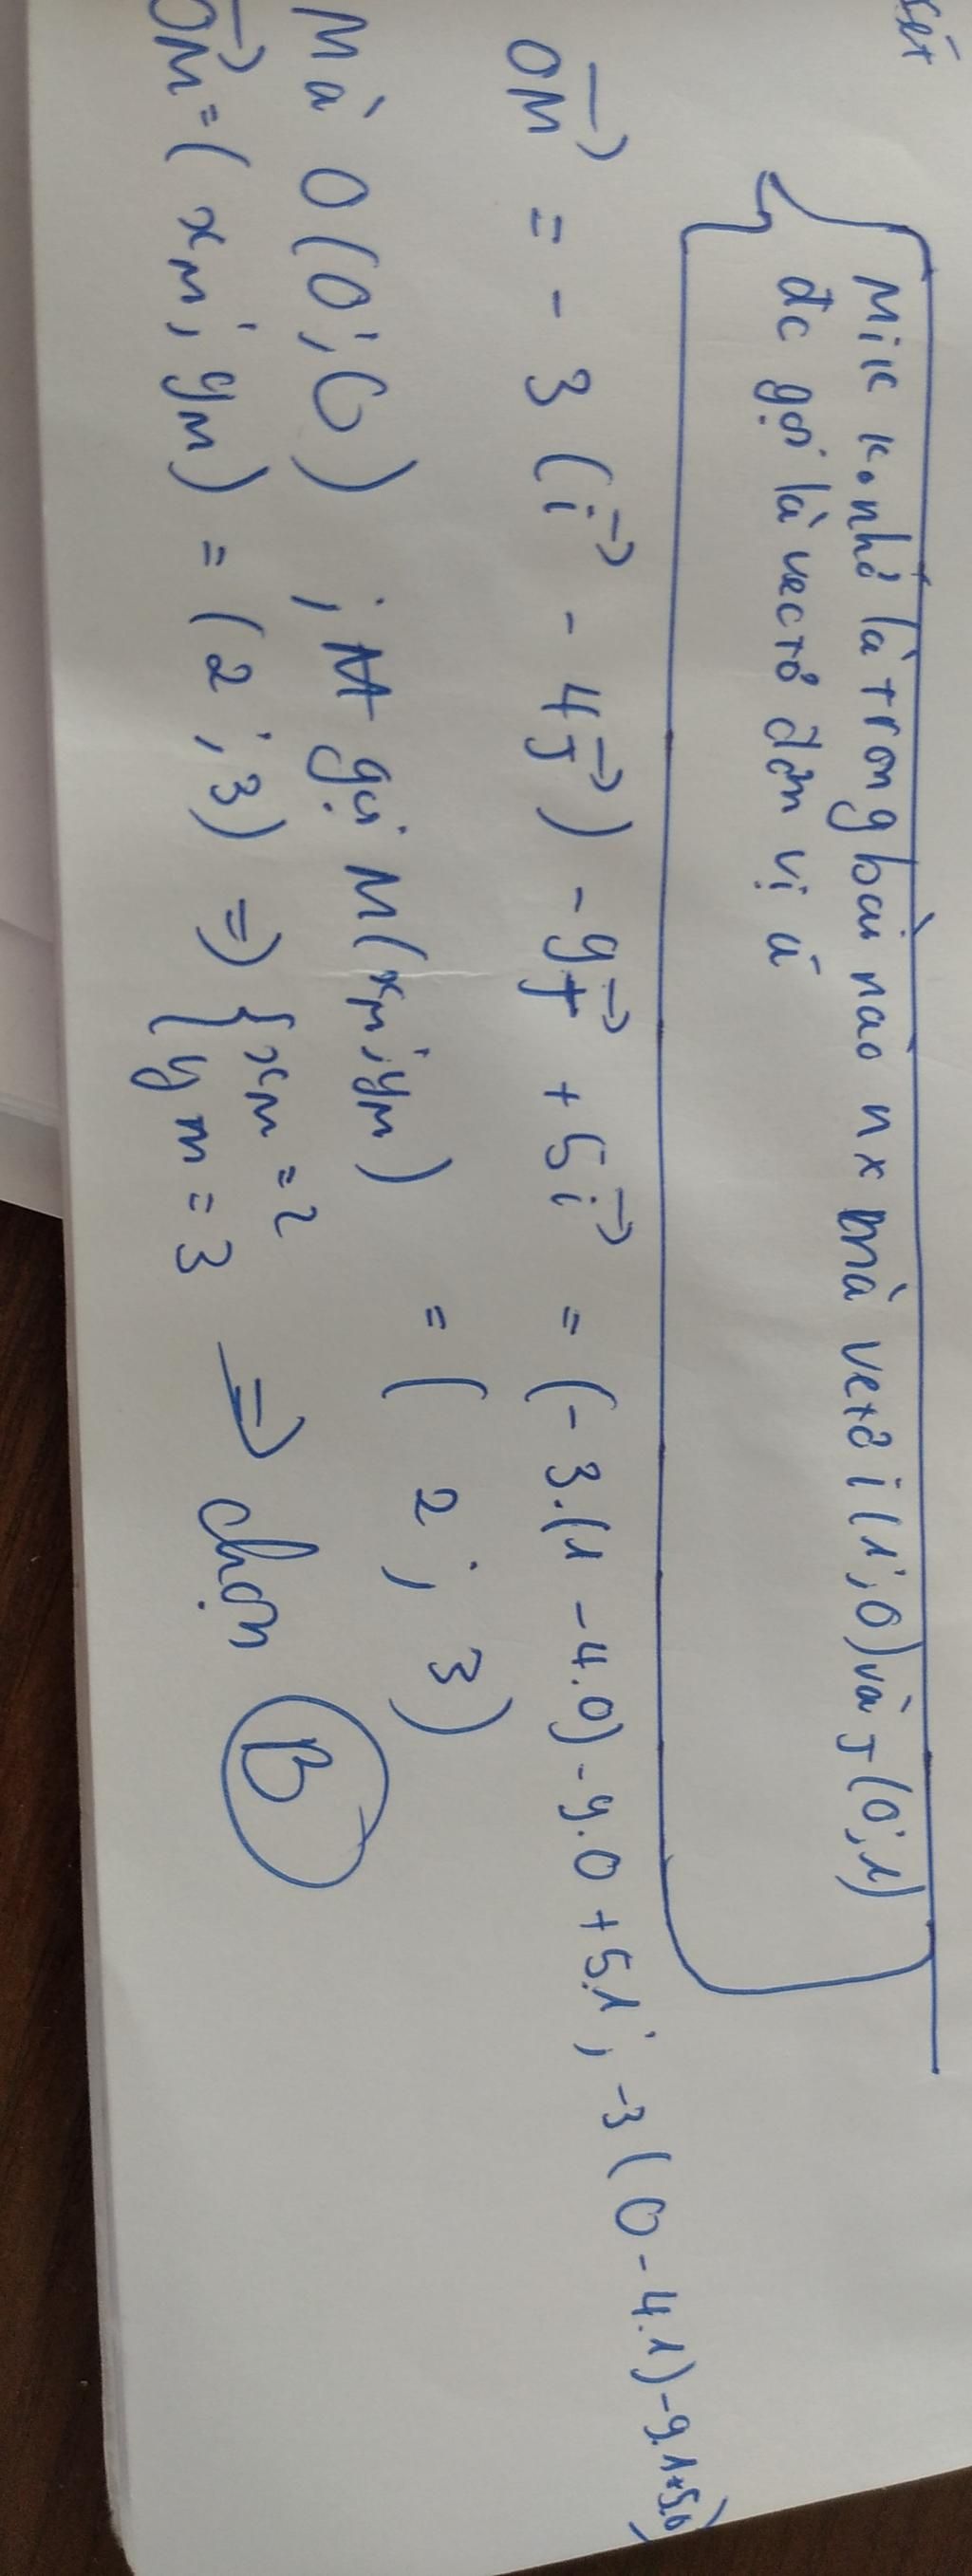 xét
Mik k nhớ là trong bài nào nx mà vectơ i (1;0) và J (0;1)
đc gọi là vectơ đơn vị á
OM→ = - 3 (i→ - 4J→) - 9J→ + 5i→ = (-3.(1 - 4.0) - 9.0 + 5.1 ; -3 (0 - 4.1) - 9.1 + 5.0)
= ( 2 ; 3 )
Mà O (0;0) ; gọi M(xM; yM)
OM→ = ( xM; yM) = (2 ; 3) => { xM = 2
yM = 3 => chọn B